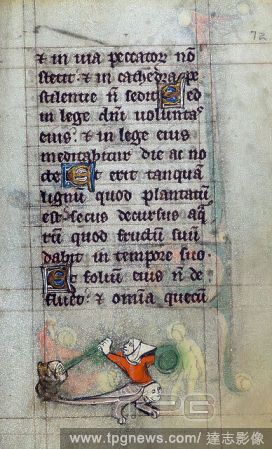 72
& in via peccatoꝝ nō
stetit . & in cathedra pe
stilentie ñ sedit Sed
in lege dñi voluntaˢ
eius . & in lege eius
meditabitur die ac no
cte Et erit tanquā
lignū quod plantatū
est secus decursus aq̄
rū quod fructū suū
dabit in tempore suo
Et foliū eius ñ de
fluet : & om̄ia quecū
TPG
www.tpgnews.com/ 達志影像